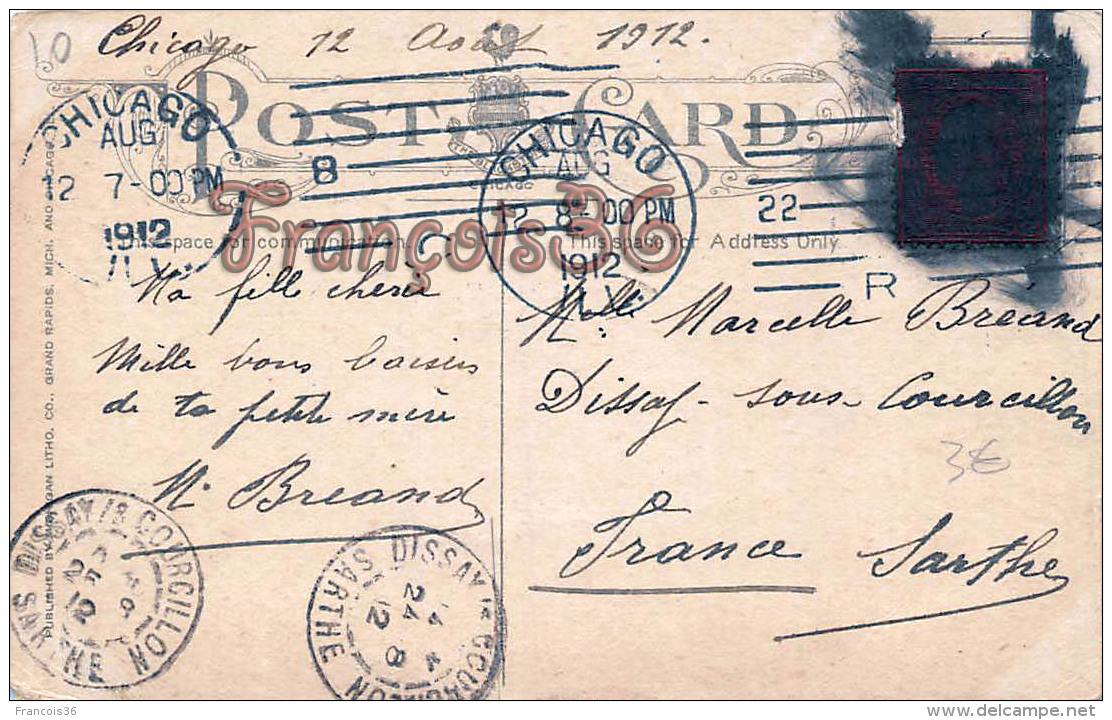 10
Chicago 12 Août 1912.
POST CARD
CHICAGO
AUG
12 7-00 PM
1912
ILL.
8
C
CHICAGO
AUG
12 8-00 PM
1912
ILL.
22
R
François36
This space for communication
This space for Address Only
Ma fille cherie
Mille bons baisers
de ta petite mère
M. Breand
Melle Marcelle Bréand
Dissay-sous-Courcillon
France Sarthe
3€
PUBLISHED BY MICHIGAN LITHO. CO., GRAND RAPIDS, MICH. AND CHICAGO
DISSAY /S COURCILLON
24 - 8
12
SARTHE
DISSAY /S COURCILLON
14 *
24 - 8
12
SARTHE
Francois36
www.delcampe.net